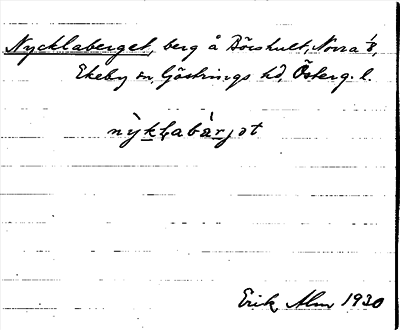 Nycklaberget, berg å Börshult, Norra 1/8,
Ekeby sn, Göstrings hd, Österg. l.
nỳkḷabàrjət
Erik Alm 1930